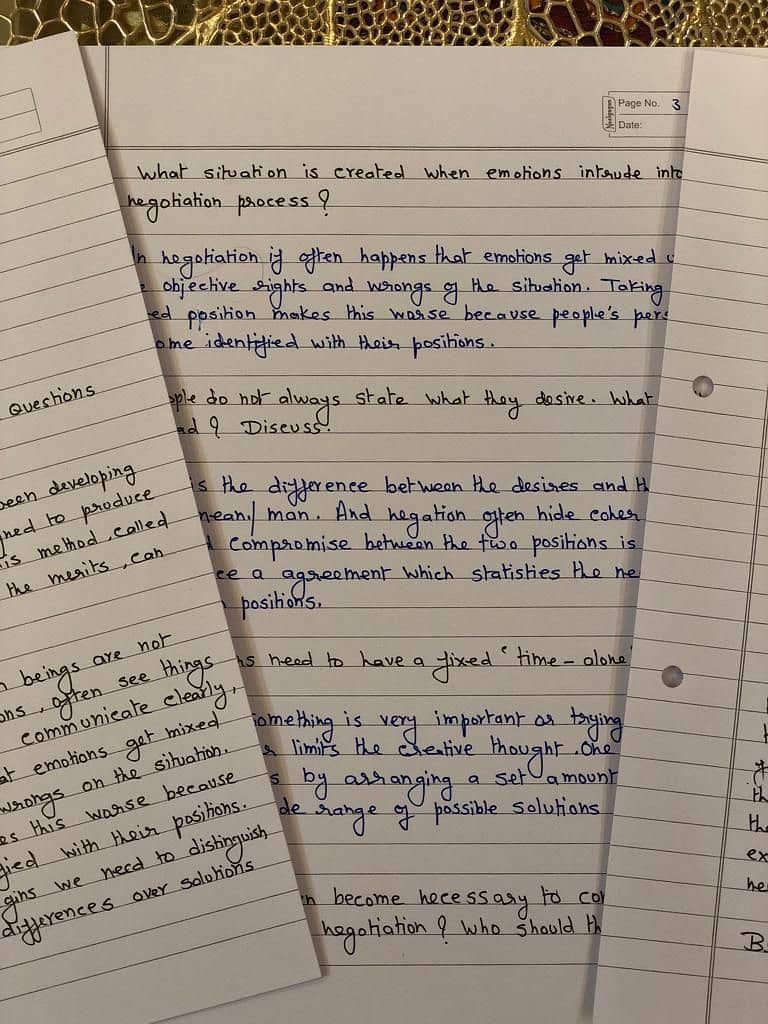 Page No. 3
Date:
What situation is created when emotions intrude into
negotiation process ?
In negotiation if often happens that emotions get mixed
objective rights and wrongs of the situation. Taking
position makes this worse because people's
identified with their positions.
do not always state what they desire. What
? Discuss.
is the difference between the desires and
mean/ man. And negation often hide coher
compromise between the two positions is
a agreement which statisties the
positions.
need to have a fixed 'time-alone'
something is very important or trying
limits the creative thought. One
by arranging a set amount
range of possible solutions
become necessary to
negotiation ? Who should
Questions
been developing
to produce
method, called
the merits, can
beings are not
often see things
communicate clearly,
emotions get mixed
wrongs on the situation.
this worse because
with their positions.
we need to distinguish
differences over solutions